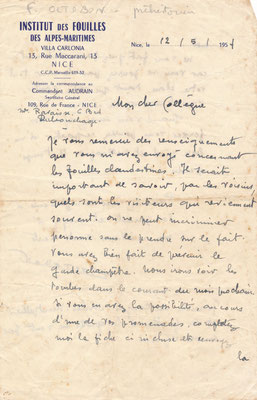 F. OCTOBON préhistorien
INSTITUT DES FOUILLES
DES ALPES-MARITIMES
VILLA CARLONIA
15, Rue Maccarani, 15
NICE
C.C.P. Marseille
Adresser la correspondance au
Commandant AUDRAIN
Secrétaire Général
109, Rue de France - NICE
Nice, le 12 / 5 / 1954
Mon cher Collègue
Je vous remercie des renseignements
que vous m'avez envoyé concernant
les fouilles clandestines. Il serait
important de savoir, par les voisins,
quels sont les visiteurs qui reviennent
souvent. on ne peut incriminer
personne sans le prendre sur le fait.
Vous avez bien fait de prévenir le
garde champêtre. Nous irons voir les
dans le courant du mois prochain
Si vous en avez la possibilité, au cours
d'une de vos promenades, complétez
moi la fiche ci incluse et envoyez
la